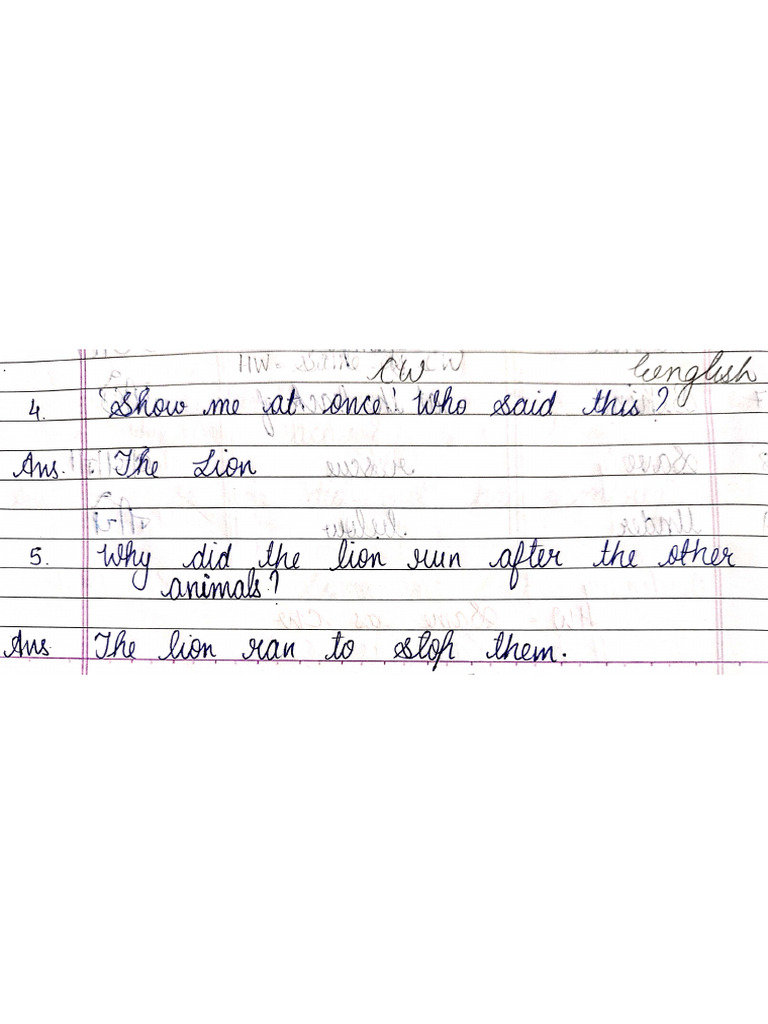 CW English
4. 'Show me at once! Who said this?
Ans. The Lion
5. Why did the lion run after the other
animals?
Ans The lion ran to stop them.